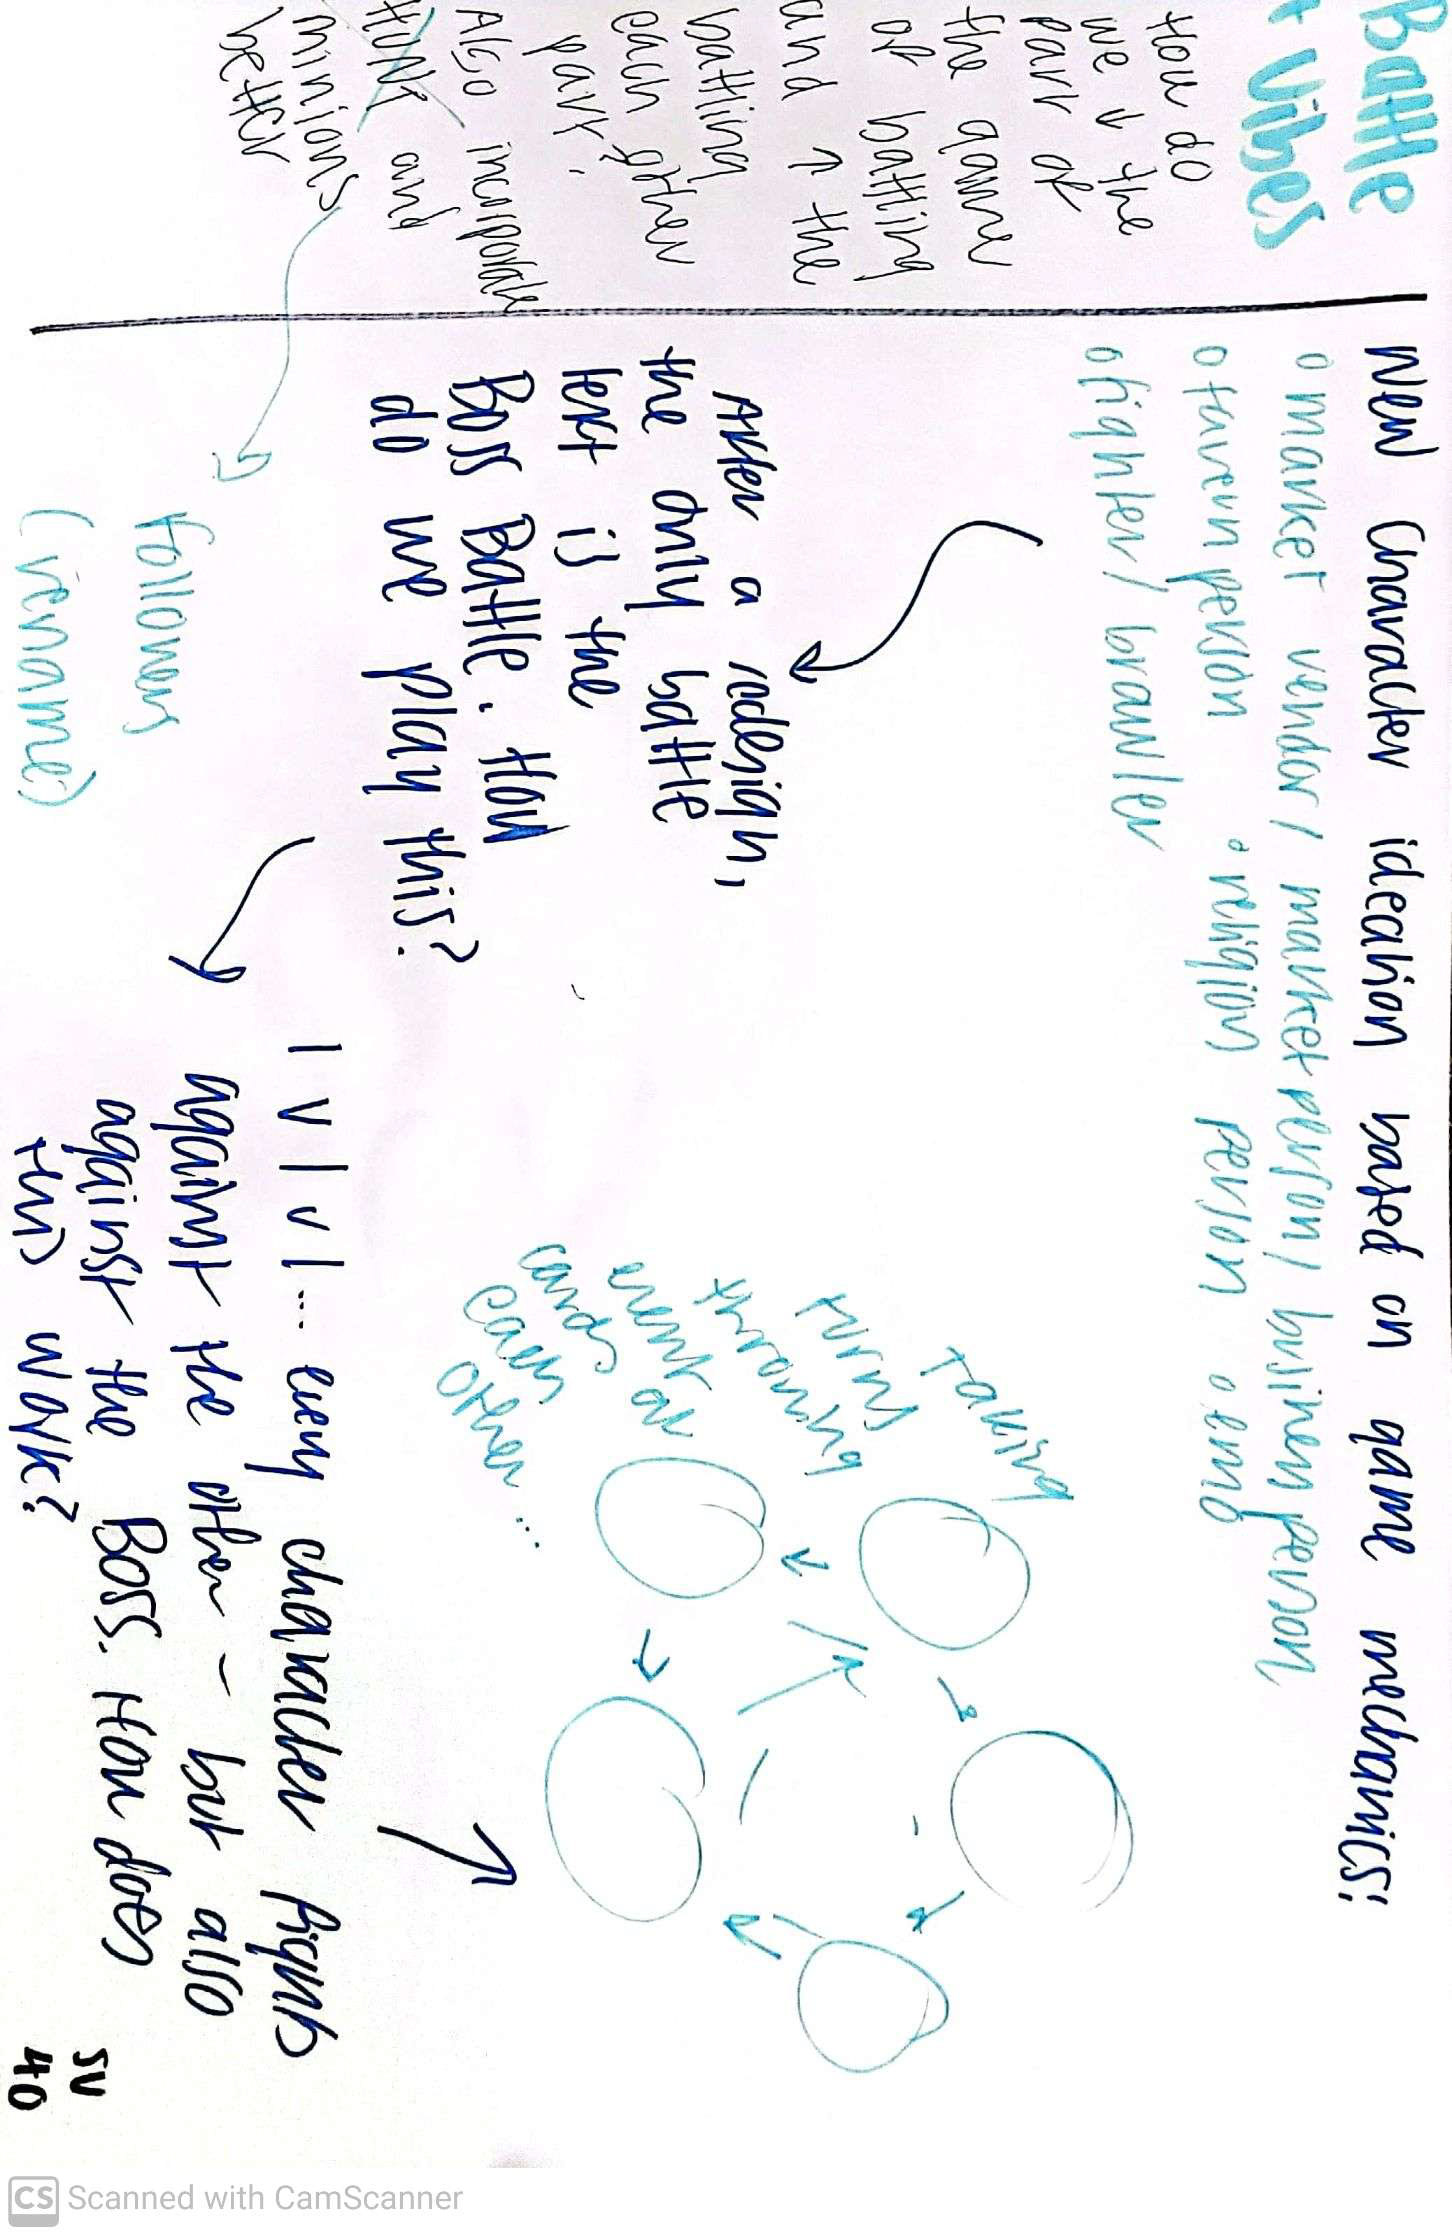 Battle
+ Vibes
How do
we ↓ the
part of
the game
of battling
and ↑ the
battling
each other
part?
Also incorporate
HUNT and
minions
better
New Character ideation based on game mechanics:
o market vendor / market person / business person
o tavern person o religion person o emo
o fighter / brawler
After a redesign,
the only battle
left is the
Boss Battle. How
do we play this?
followers
(rename)
Taking
turns
throwing
event
cards at
each
other...
1 v 1 v 1... every character fights
against the other - but also
against the Boss. How does
this work?
SV
40
CS Scanned with CamScanner